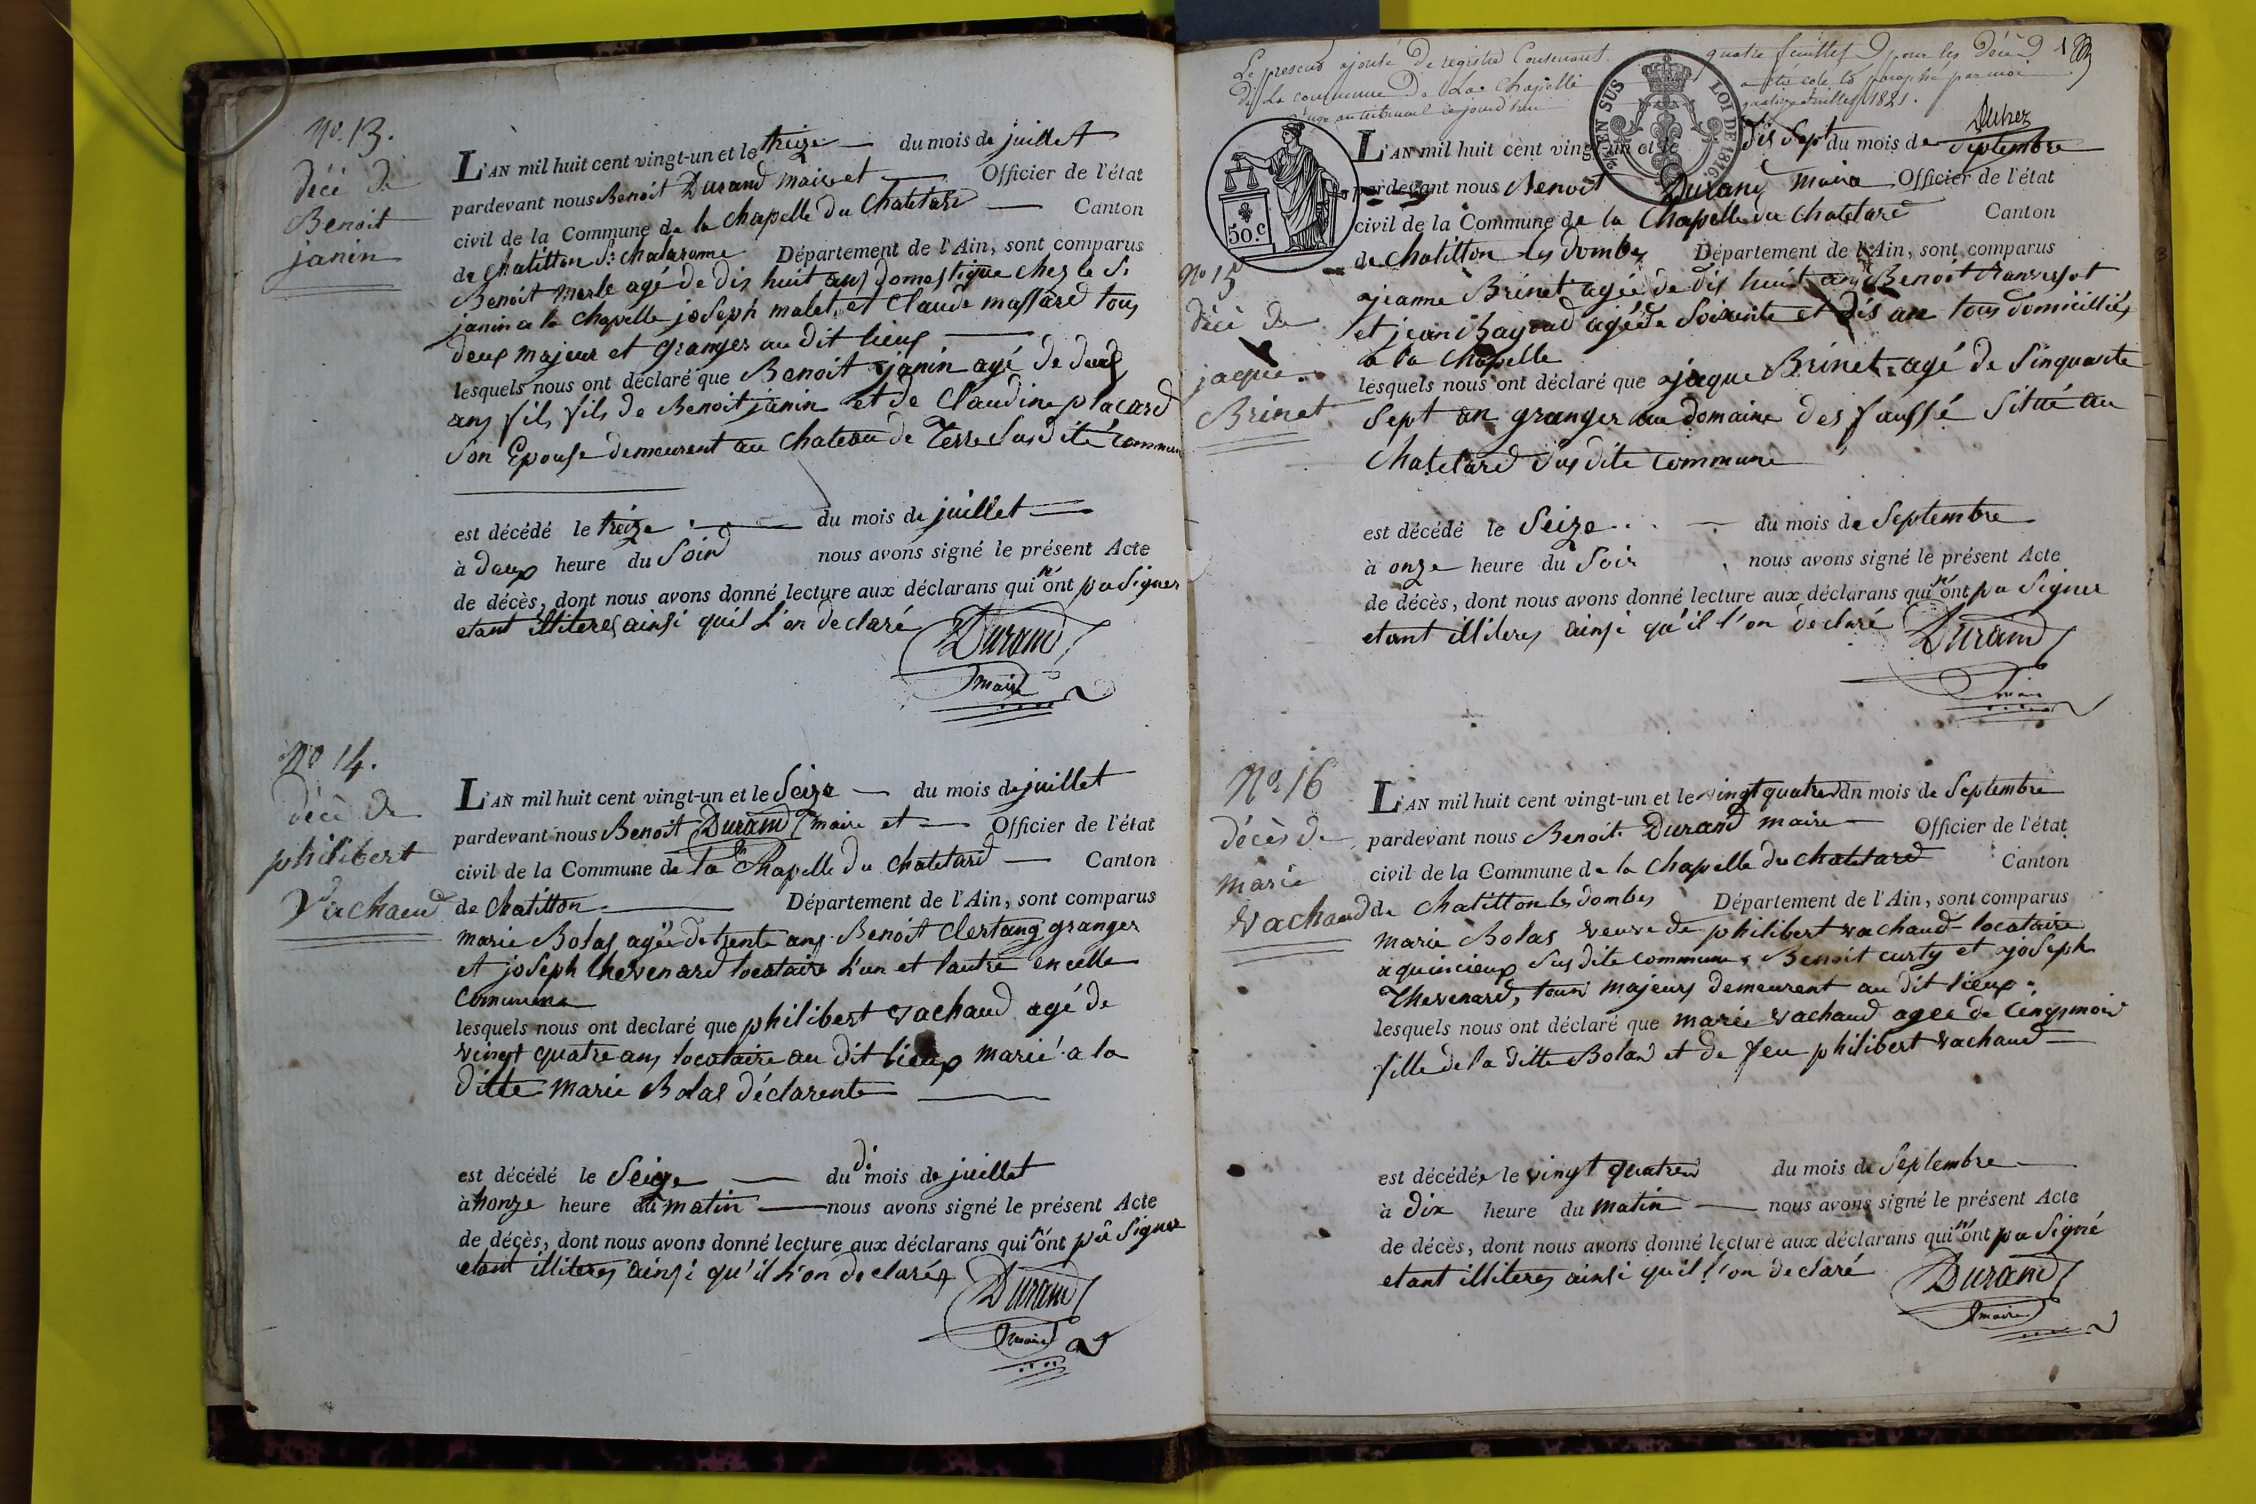 N.º 13.
décè de
Benoit
janin
L'AN mil huit cent vingt-un et le treize du mois de juillet
pardevant nous Benoit Durand maire et Officier de l'état
civil de la Commune de la Chapelle du Chatelard Canton
de Chatillon S.t chalarome Département de l'Ain, sont comparus
Benoit Merle agé de dix huit ans domestique chez le S.r
janin a la Chapelle joseph malet, et Claude massard tous
deux majeur et granger au dit lieux
lesquels nous ont déclaré que Benoit janin agé de deux
ans fils fils de Benoit janin et de Claudine placard
Son Epouse demeurent au Chateau de Terre Susdite Commune
est décédé le treize du mois de juillet
à deux heure du Soir nous avons signé le présent Acte
de décès, dont nous avons donné lecture aux déclarans qui n'ont pu Signer
etant illiteres ainsi quil l'on declaré
Durand
maire
Nº 14.
décè de
philibert
Vachaud
L'AN mil huit cent vingt-un et le Seize du mois de juillet
pardevant nous Benoit Durand maire et Officier de l'état
civil de la Commune de la Chapelle du Chatelard Canton
de Chatillon Département de l'Ain, sont comparus
marie Bolas agée de trente ans Benoit Clertang granger
et joseph thevenard locataire l'un et lautre en celle
Commune
lesquels nous ont declaré que philibert vachaud agé de
vingt quatre ans locataire au dit lieux marié a la
ditte marie Bolas déclarente
est décédé le Seize du di mois de juillet
à honze heure du matin nous avons signé le présent Acte
de décès, dont nous avons donné lecture aux déclarans qui n'ont pû Signer
etant illiteres ainsi qu'il l'on declaré
Durand
maire
Le present ajouté de registre Contenant quatre feuillets pour les décès
de la commune de La Chapelle a été coté et paraphé par moi
juge au tribunal ce jourd'hui quatorze juillet 1821.
TIMB. EN SUS LOI DE 1816.
50.C
Nº 15
décè de
jaque
Brinet
L'AN mil huit cent vingt-un et le dix Sept du mois de Septembre
pardevant nous Benoit Durand maire Officier de l'état
civil de la Commune de la Chapelle du Chatelard Canton
de Chatillon les dombes Département de l'Ain, sont comparus
jeanne Brinet agée de dix huit ans Benoit
et jean agé de Soixante et dis an tous domicilliés
a la Chapelle
lesquels nous ont déclaré que jaque Brinet agé de Sinquante
Sept an granger au domaine des faussé Situé au
Chatelard Susdite Commune
est décédé le Seize du mois de Septembre
à onze heure du Soir nous avons signé le présent Acte
de décès, dont nous avons donné lecture aux déclarans qui n'ont pu Signer
etant illiteres ainsi qu'il l'on declaré
Durand
maire
Nº 16
décès de
marie
Vachaud
L'AN mil huit cent vingt-un et le vingt quatre du mois de Septembre
pardevant nous Benoit Durand maire Officier de l'état
civil de la Commune de la Chapelle du Chatelard Canton
de Chatillon les dombes Département de l'Ain, sont comparus
marie Bolas veuve de philibert vachaud locataire
a quincieux Susdite commune, Benoit curty et joseph
Thevenard, tous majeurs demeurent au dit lieux
lesquels nous ont déclaré que marie vachaud agée de Cinq mois
fille de la ditte Bolas et de feu philibert vachaud
est décédée le vingt quatre du mois de Septembre
à dix heure du matin nous avons signé le présent Acte
de décès, dont nous avons donné lecture aux déclarans qui n'ont pu Signé
etant illiteres ainsi quil l'on declaré
Durand
maire